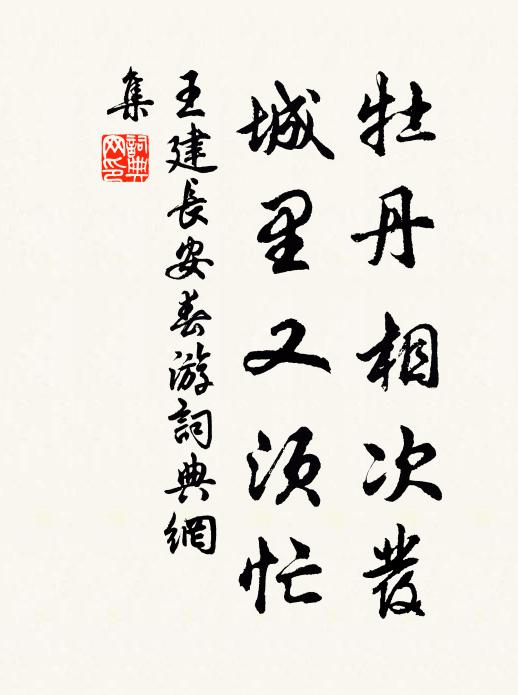 牡丹相次發
城里又須忙
王建長安春游詞典網
集
詞典
网印